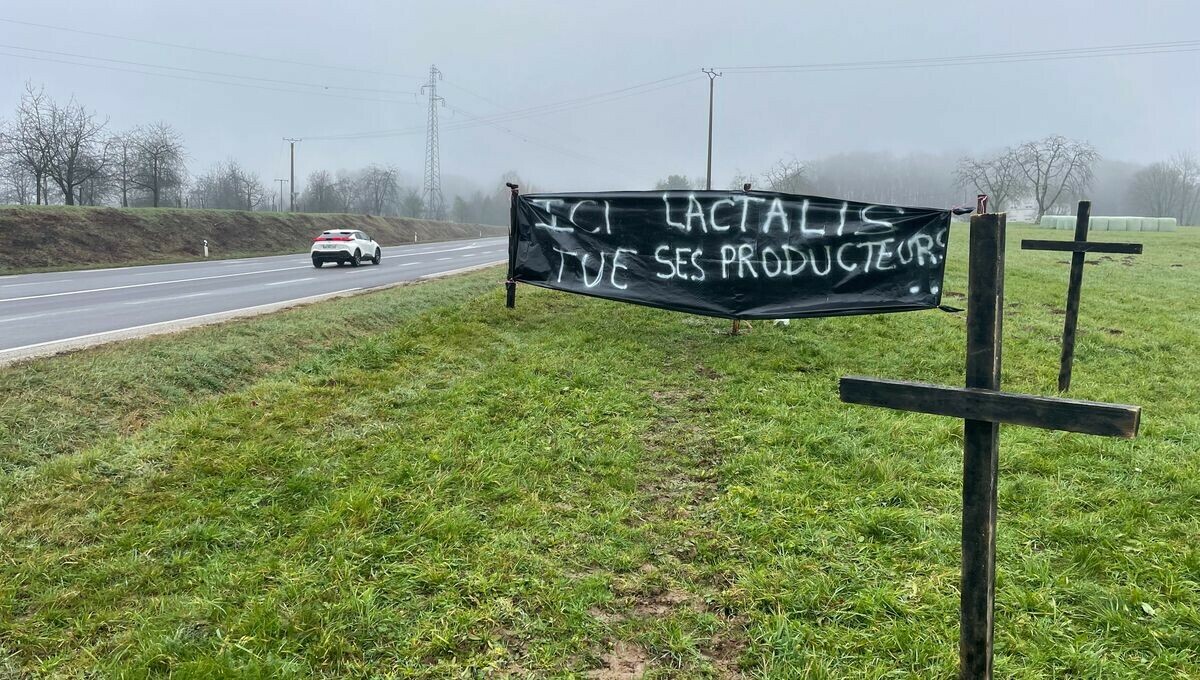 ICI LACTALIS
TUE SES PRODUCTEURS